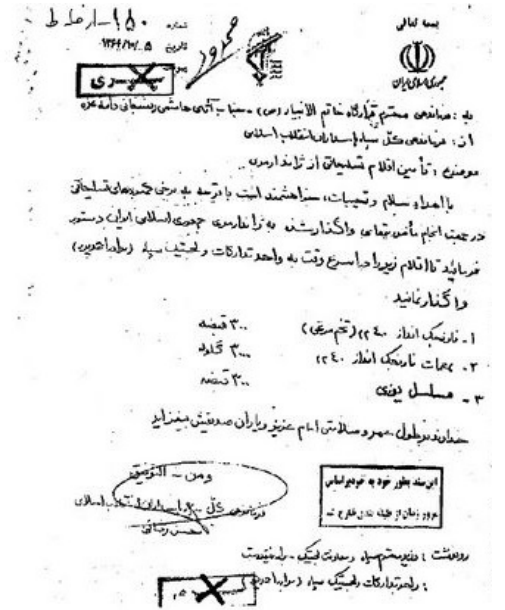 بسمه تعالی
جمهوری اسلامی ایران
شماره ۱۵۰-
تاریخ ۱۳۶۴/۱۰/۵
سری
به : فرماندهی محترم قرارگاه خاتم الانبیاء (ص) - جناب آقای هاشمی رفسنجانی دامه عزه
از : فرماندهی کل سپاه پاسداران انقلاب اسلامی
موضوع : تأمین اقلام تسلیحاتی از ژاندارمری
با اهداء سلام و تحیات، خواهشمند است با توجه به برخی کمبودهای تسلیحاتی
در جهت انجام مأموریتهای واگذار شده به ژاندارمری جمهوری اسلامی ایران دستور
فرمائید تا اقلام زیر را در اسرع وقت به واحد تدارکات و لجستیک سپاه
واگذار نمائید
۱- نارنجک انداز ۴۰ مم (تخم مرغی) ۳۰۰ قبضه
۲- مهمات نارنجک انداز ۴۰ مم ۳۰۰۰ گلوله
۳- مسلسل یوزی ۳۰۰ قبضه
خداوند بر طول عمر و سلامتی امام عزیز و یاران صدیقش بیفزاید
ومن ا... التوفیق
فرماندهی کل سپاه پاسداران انقلاب اسلامی
محسن رضائی
این سند بطور خود به خود براساس
مرور زمان از طبقه بندی خارج شد
رونوشت : وزیر محترم سپاه
: واحد تدارکات و لجستیک سپاه